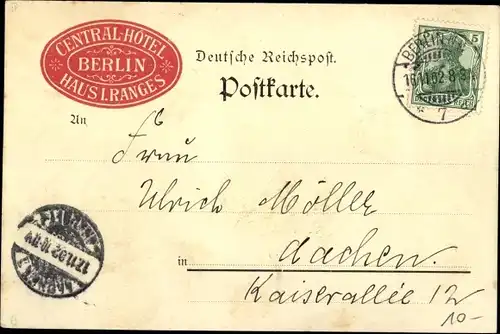 CENTRAL-HOTEL
BERLIN
HAUS I. RANGES
Deutsche Reichspost.
Postkarte.
5
BERLIN
16.11.02 8-
7
An
Frau
Ulrich Möller
in Aachen.
Kaiserallee 12
AACHEN
17.11.02
10-